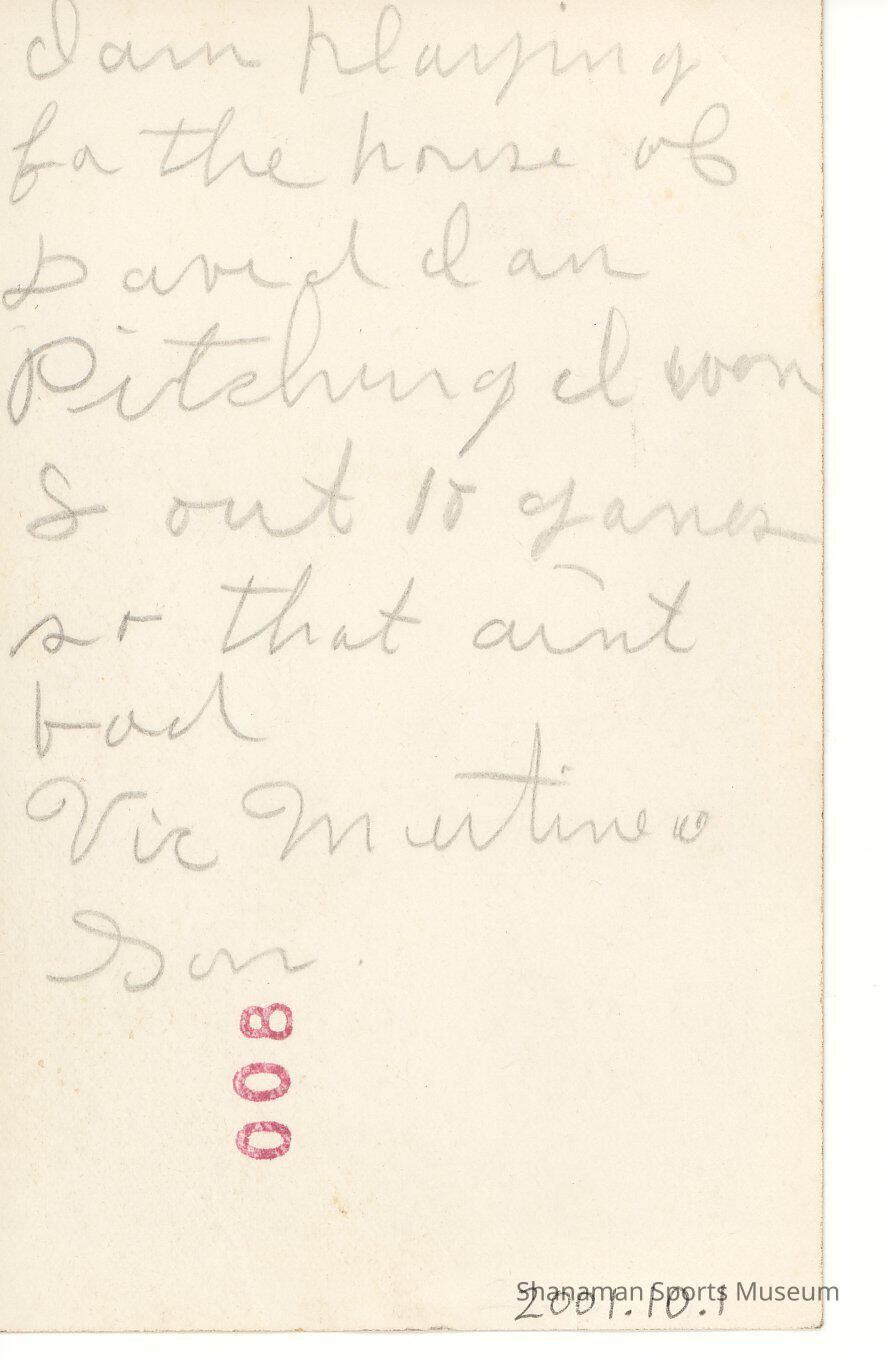 I am playing
fo the house of
David I am
Pitching I won
8 out 10 games
so that aint
bad
Vic Martineo
Son.
008
Shanaman Sports Museum
2001.10.1